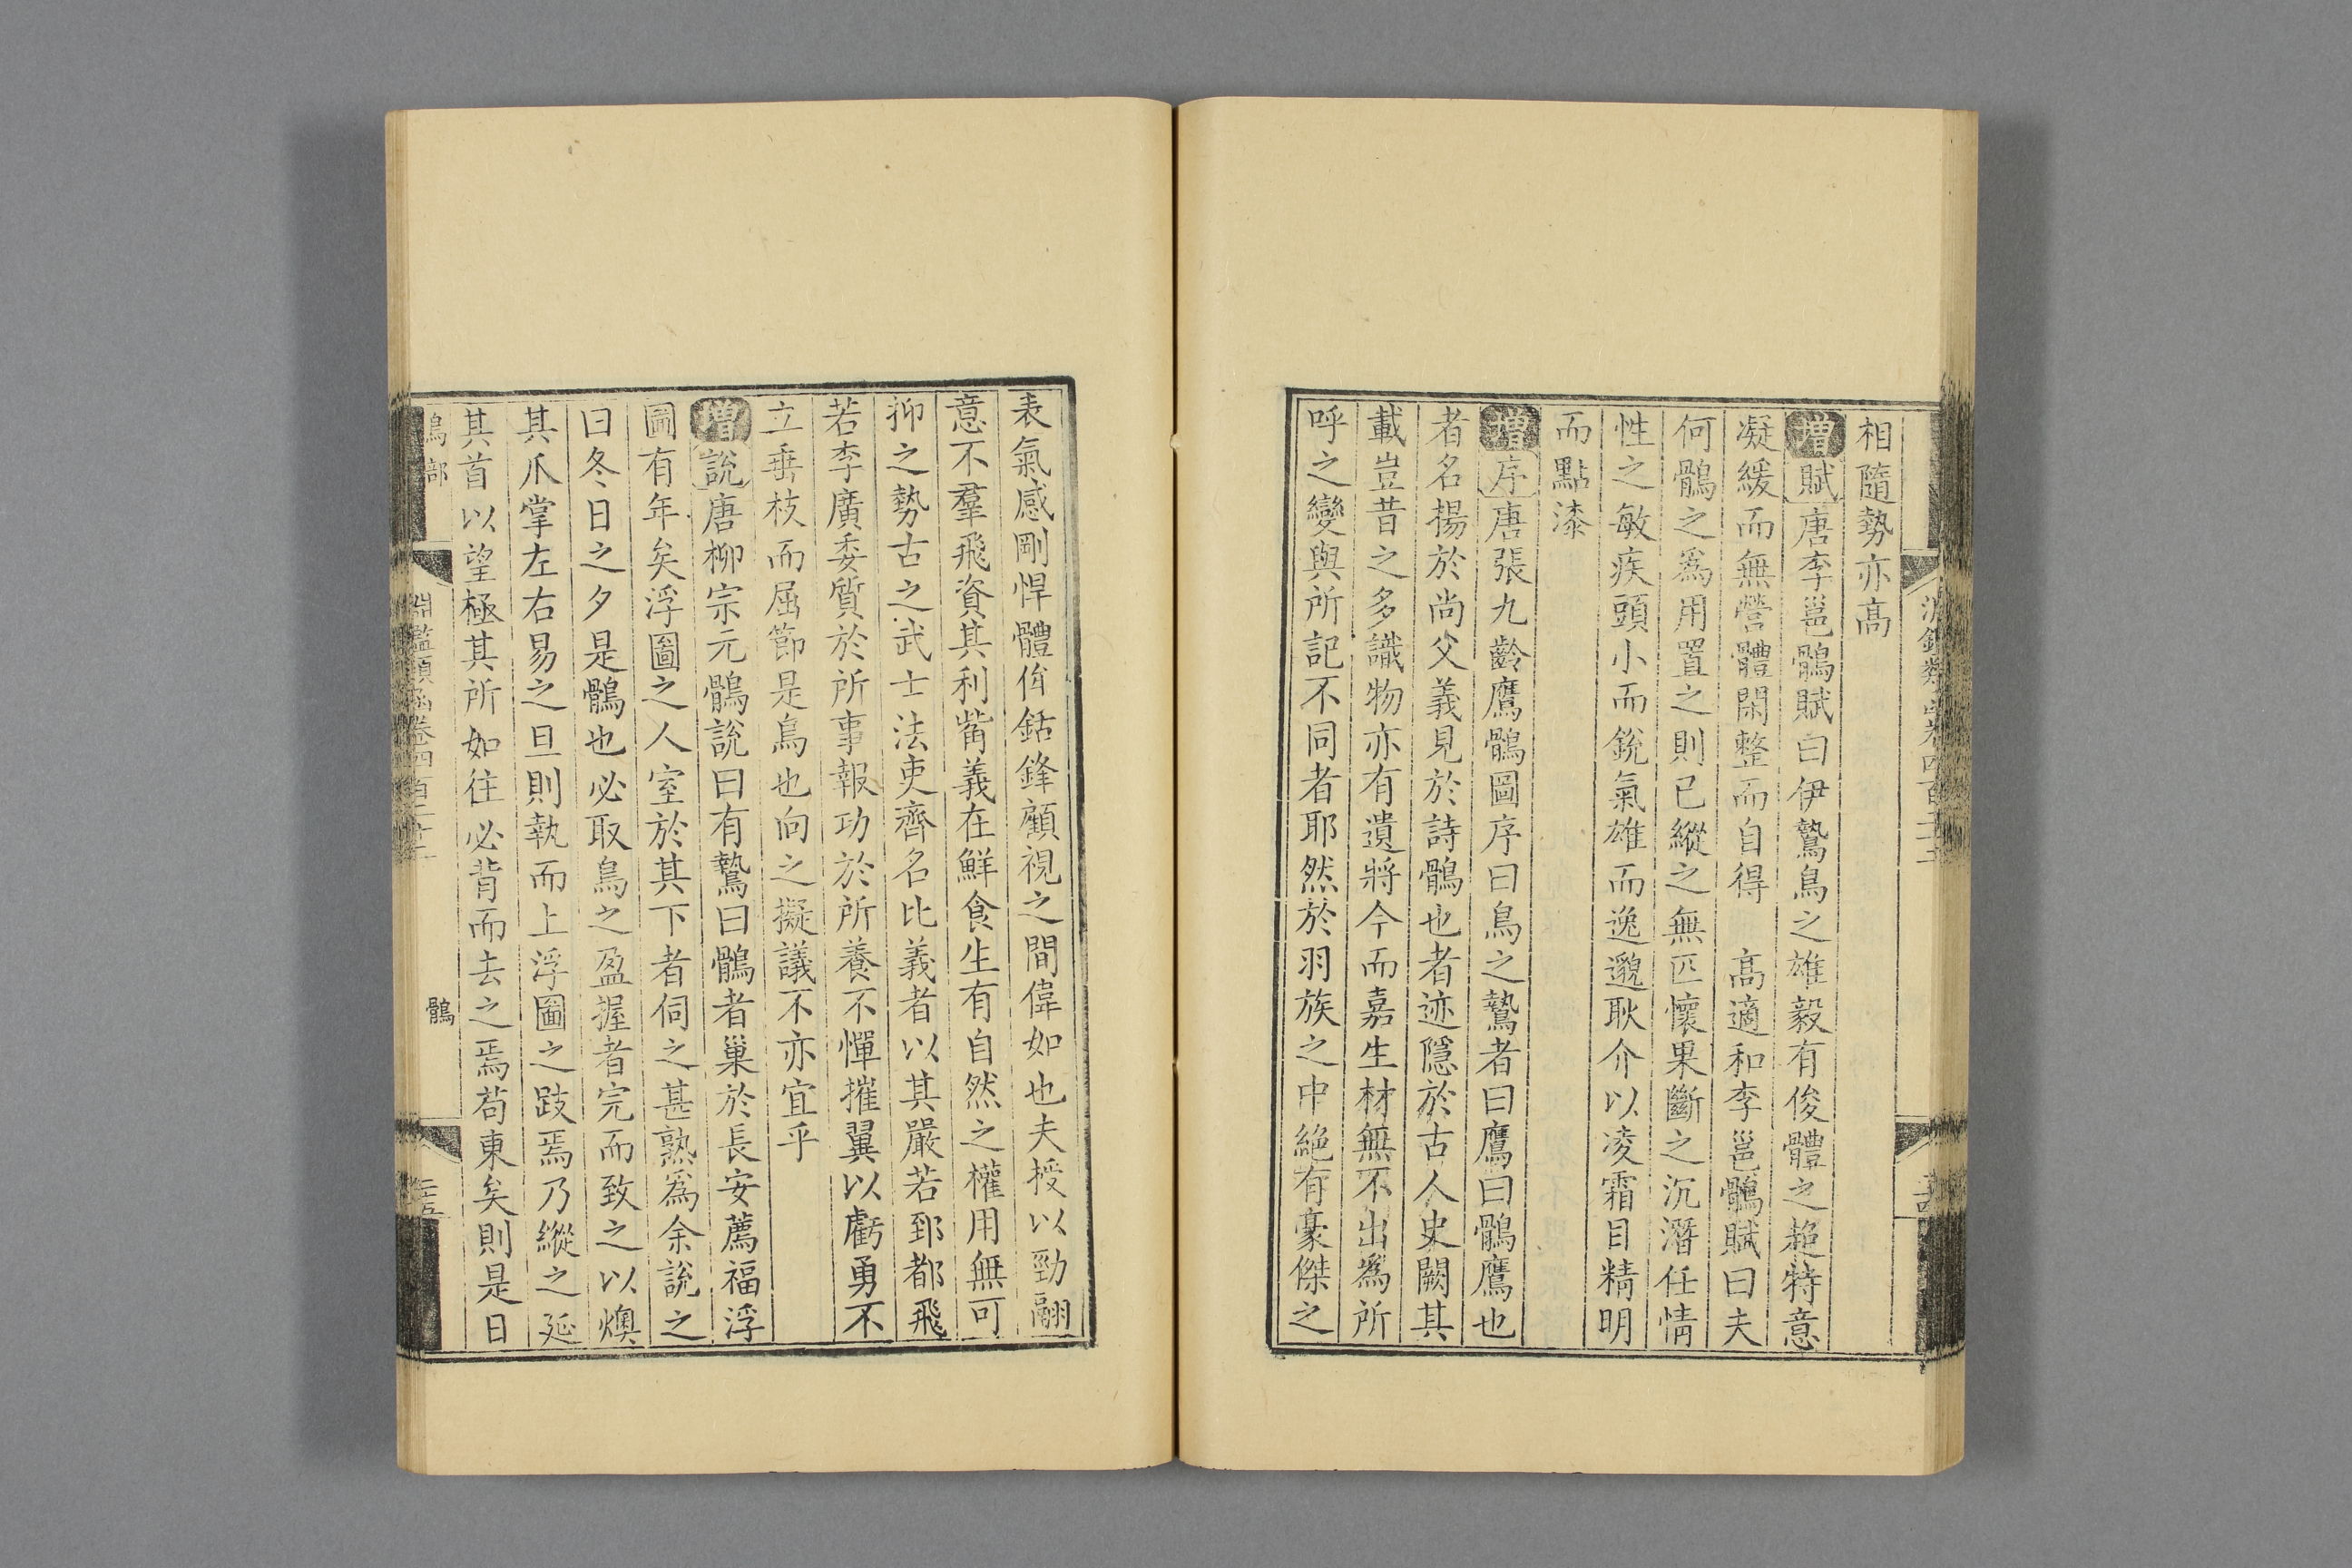 相隨勢亦高
增賦唐李邕鶻賦曰伊鷙鳥之雄毅有俊體之超特意
凝緩而無營體閑整而自得　高適和李邕鶻賦曰夫
何鶻之爲用置之則已縱之無匹懷果斷之沉潛任情
性之敏疾頭小而銳氣雄而逸邈耿介以凌霜目精明
而點漆
增序唐張九齡鷹鶻圖序曰鳥之鷙者曰鷹曰鶻鷹也
者名揚於尚父義見於詩鶻也者迹隱於古人史闕其
載豈昔之多識物亦有遺將今而嘉生材無不出爲所
呼之變與所記不同者耶然於羽族之中絕有豪傑之
表氣感剛悍體侔銛鋒顧視之間偉如也夫授以勁翮
意不羣飛資其利觜義在鮮食生有自然之權用無可
抑之勢古之武士法吏齊名比義者以其嚴若郅都飛
若李廣委質於所事報功於所養不憚摧翼以虧勇不
立垂枝而屈節是鳥也向之擬議不亦宜乎
增說唐柳宗元鶻說曰有鷙曰鶻者巢於長安薦福浮
圖有年矣浮圖之人室於其下者伺之甚熟爲余說之
曰冬日之夕是鶻也必取鳥之盈握者完而致之以燠
其爪掌左右易之旦則執而上浮圖之跂焉乃縱之延
其首以望極其所如往必背而去之焉苟東矣則是日
鳥部
淵鑑類函卷四百二十二
鶻
二五